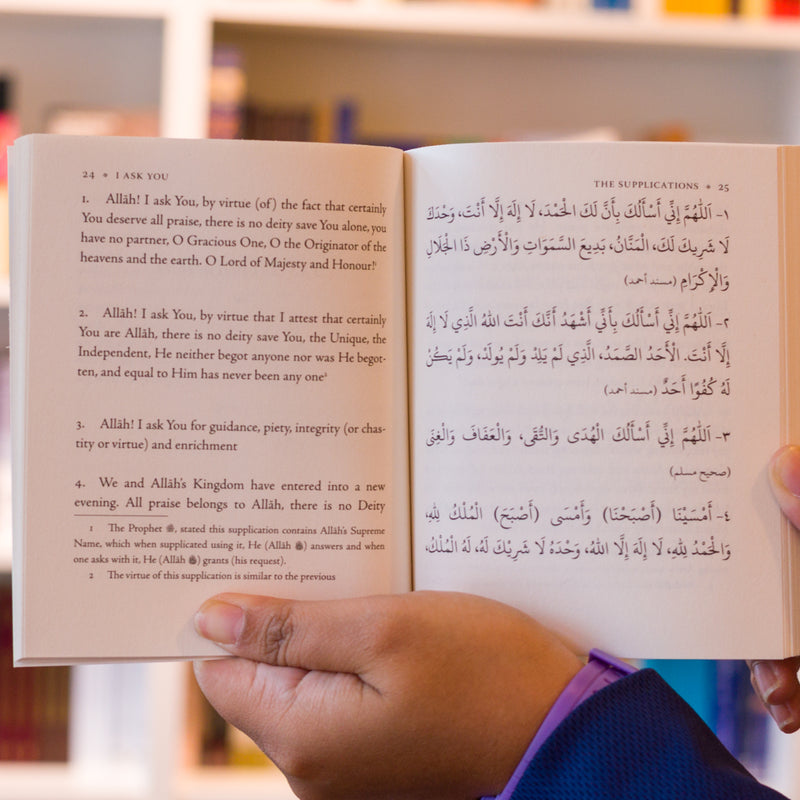 24 * I ASK YOU
1. Allāh! I ask You, by virtue (of) the fact that certainly
You deserve all praise, there is no deity save You alone, you
have no partner, O Gracious One, O the Originator of the
heavens and the earth. O Lord of Majesty and Honour!¹
2. Allāh! I ask You, by virtue that I attest that certainly
You are Allāh, there is no deity save You, the Unique, the
Independent, He neither begot anyone nor was He begot-
ten, and equal to Him has never been any one²
3. Allāh! I ask You for guidance, piety, integrity (or chas-
tity or virtue) and enrichment
4. We and Allāh's Kingdom have entered into a new
evening. All praise belongs to Allāh, there is no Deity
1 The Prophet ﷺ, stated this supplication contains Allāh's Supreme
Name, which when supplicated using it, He (Allāh ﷻ) answers and when
one asks with it, He (Allāh ﷻ) grants (his request).
2 The virtue of this supplication is similar to the previous
THE SUPPLICATIONS * 25
١- اَللّٰهُمَّ إِنِّي أَسْأَلُكَ بِأَنَّ لَكَ الْحَمْدَ، لَا إِلَهَ إِلَّا أَنْتَ، وَحْدَكَ
لَا شَرِيكَ لَكَ، الْمَنَّانُ، بَدِيعَ السَّمَوَاتِ وَالْأَرْضِ ذَا الْجَلَالِ
وَالْإِكْرَامِ (مسند أحمد)
٢- اَللّٰهُمَّ إِنِّي أَسْأَلُكَ بِأَنِّي أَشْهَدُ أَنَّكَ أَنْتَ اللهُ الَّذِي لَا إِلَهَ
إِلَّا أَنْتَ. الْأَحَدُ الصَّمَدُ، الَّذِي لَمْ يَلِدْ وَلَمْ يُولَدْ، وَلَمْ يَكُنْ
لَهُ كُفُوًا أَحَدٌ (مسند أحمد)
٣- اَللّٰهُمَّ إِنِّي أَسْأَلُكَ الْهُدَى وَالتُّقَى، وَالْعَفَافَ وَالْغِنَى
(صحيح مسلم)
٤- أَمْسَيْنَا (أَصْبَحْنَا) وَأَمْسَى (أَصْبَحَ) الْمُلْكُ لِلهِ،
وَالْحَمْدُ لِلهِ، لَا إِلَهَ إِلَّا اللهُ، وَحْدَهُ لَا شَرِيْكَ لَهُ، لَهُ الْمُلْكُ،